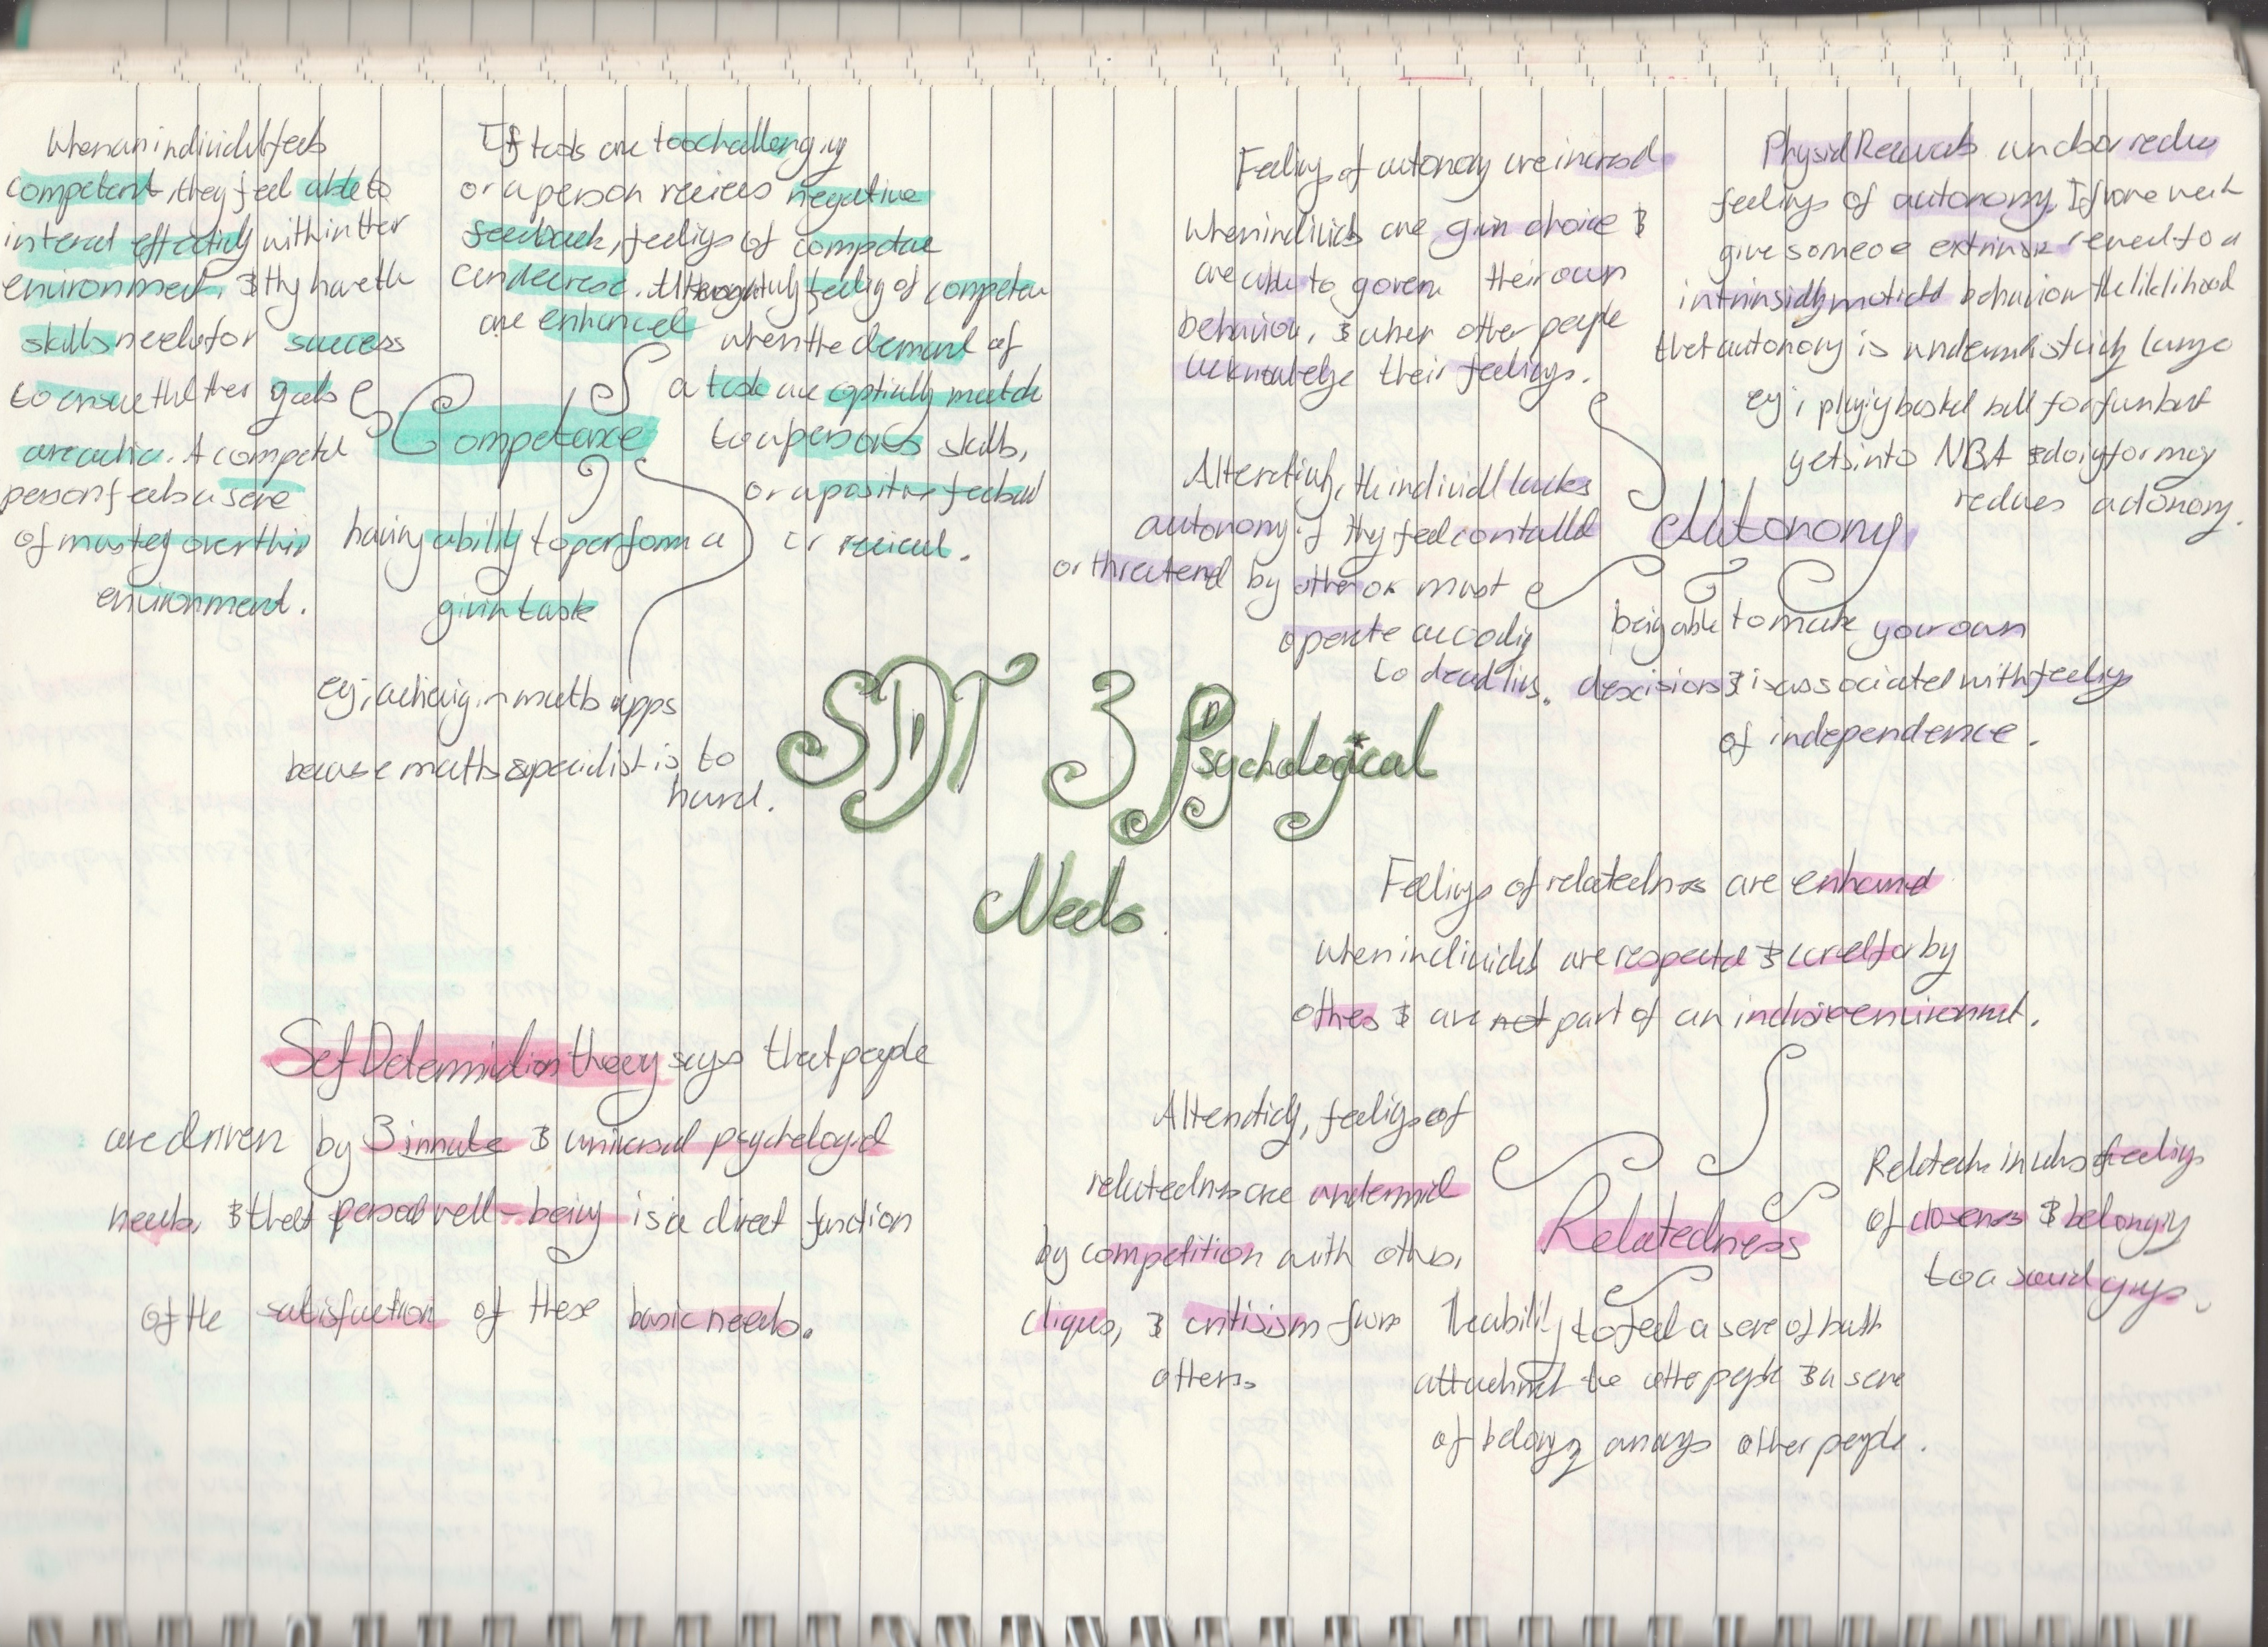 When an individul feels
competent, they feel able to
interact effectivly within ther
environment, & thy have the
skills needs for success
to ensure tht ther goals
are achiev. A competet
person feels a sense
of mastey over thir
environment.
If tasks are too challenging
or a person recieves negative
feedback, feelings of competance
can decrese. Alternatively feelig of competance
are enhanced
when the demand of
a task are optimally matche
to a persons skills,
or a positive feedback
is recieved.
Competance
having ability to perform a
given task
eg; achievig in maths apps
because maths specialist is to
hard.
Feelings of autonomy are incresed
when individs are givin choice &
are able to govern their own
behavior, & when other people
acknowledge their feelings.
Physical Rewards can also reduce
feelings of autonomy. If one were
give someoe extrinsic reward to a
intrinsically motivated behaviour the liklihood
that autonomy is undermined is fairly large
eg; playig basket ball for fun but
gets into NBA & doig for mony
reduces autonomy.
Alternativly, the individul lacks
autonomy if thy feel controlled
or threatened by other or must
operate accordig
to deadlins.
Autonomy
being able to make your own
descisions & is associated with feelings
of independence.
SDT 3 Psychological
Needs
Self Determination theory says that people
are driven by 3 innate & universal psychological
needs, & that personal well-being is a direct function
of the satisfaction of these basic needs.
Feelings of relatedness are enhanced
when individuls are respected & cared for by
others & are not part of an indisiveenvironment.
Alternativly, feelings of
relatedness are undermined
by competition with others,
cliques, & critisism from
others.
Relatedness
Relatedness involves feelings
of closeness & belonging
to a social group.
The ability to feel a sense of both
attachment to other people & a sense
of belong amongs other people.